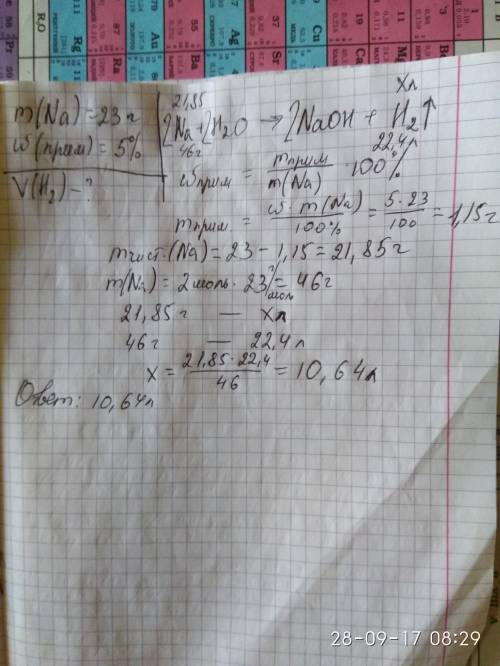 m(Na) = 23 г
ω(прим) = 5%
V(H₂) - ?
21,85
Xл
2Na + 2H₂O → 2NaOH + H₂↑
46г
22,4л
ωприм = mприм / m(Na) · 100%
mприм. = ω · m(Na) / 100% = 5 · 23 / 100 = 1,15г
mчист.(Na) = 23 - 1,15 = 21,85г
m(Na) = 2моль · 23 г/моль = 46г
21,85 г — Xл
46 г — 22,4 л
X = 21,85 · 22,4 / 46 = 10,64л
Ответ: 10,64л
28-09-17 08:29